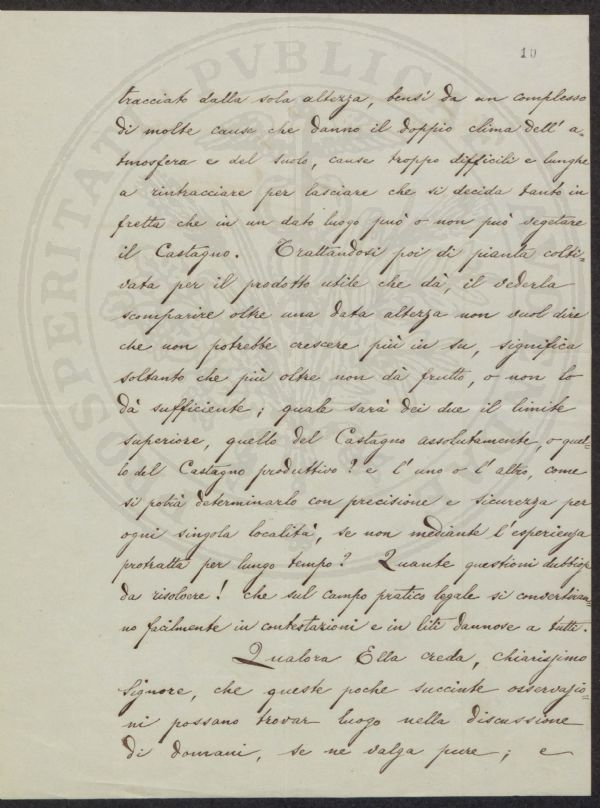 10
tracciato dalla sola altezza, bensì da un complesso
di molte cause che danno il doppio clima dell' a-
tmosfera e del suolo, cause troppo difficili e lunghe
a rintracciare per lasciare che si decida tanto in
fretta che in un dato luogo può o non può vegetare
il Castagno. Trattandosi poi di pianta colti-
vata per il prodotto utile che dà, il vederla
scomparire oltre una data altezza non vuol dire
che non potrebbe crescere più in su, significa
soltanto che più oltre non dà frutto, o non lo
dà sufficiente; quale sarà dei due il limite
superiore, quello del Castagno assolutamente, o quel-
lo del Castagno produttivo? e l' uno o l' altro, come
si potrà determinarlo con precisione e sicurezza per
ogni singola località, se non mediante l' esperienza
protratta per lungo tempo? Quante questioni dubbiose
da risolvere! che sul campo pratico legale si convertiran-
no facilmente in contestazioni e in liti dannose a tutti.
Qualora Ella creda, chiarissimo
Signore, che queste poche succinte osservazio-
ni possano trovar luogo nella discussione
di domani, se ne valga pure; e
PVBLICAE
PROSPERITATI